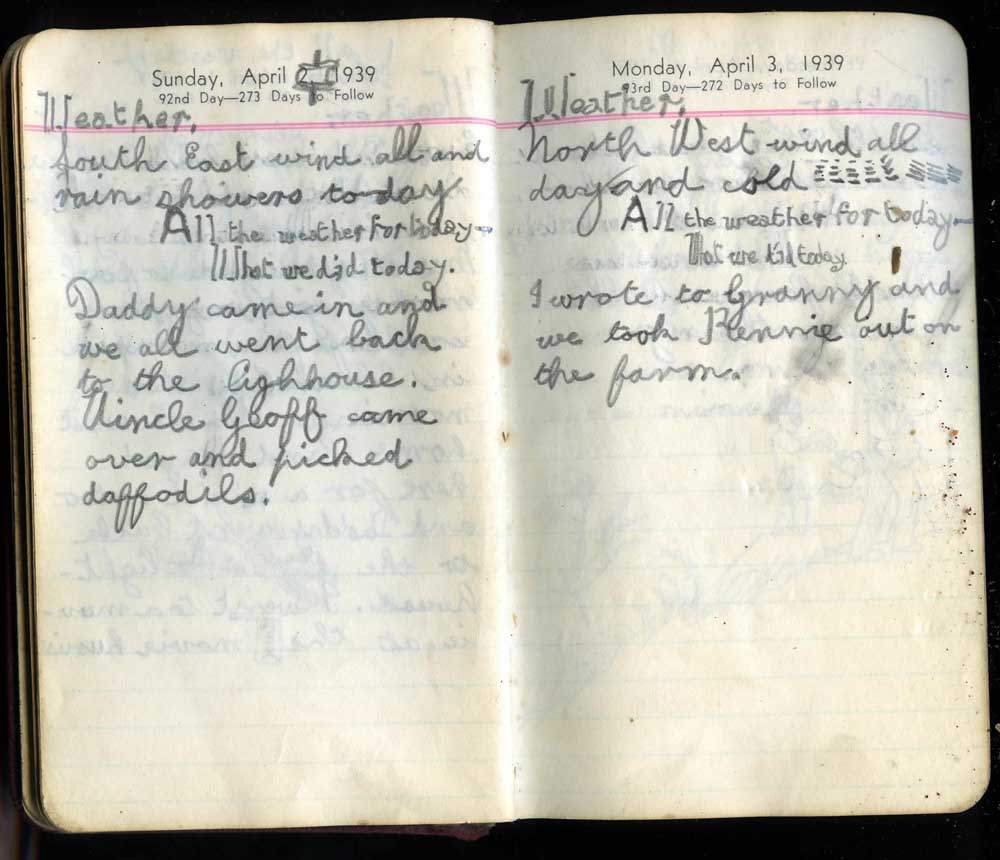 Sunday, April 2, 1939
92nd Day—273 Days to Follow
Weather.
South East wind all and
rain showers to-day
All the weather for today-
What we did today.
Daddy came in and
we all went back
to the lighhouse.
Uincle Geoff came
over and picked
daffodils.
Monday, April 3, 1939
93rd Day—272 Days to Follow
Weather.
North West wind all
day and cold
All the weather for today-
What we did today.
I wrote to Granny and
we took Rennie out on
the farm.